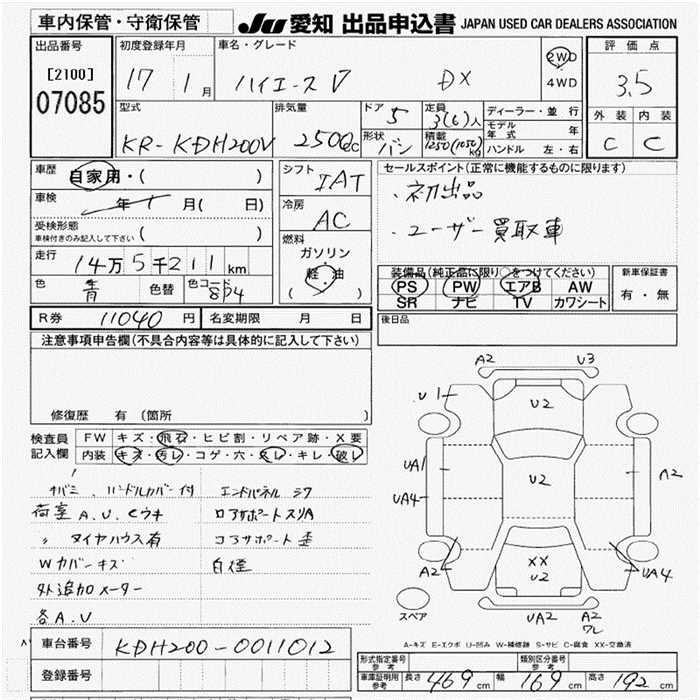 車内保管・守衛保管
JU 愛知 出品申込書 JAPAN USED CAR DEALERS ASSOCIATION
出品番号
[2100]
07085
初度登録年月
17 1月
車名・グレード
ハイエースV DX
2WD
4WD
評価点
3.5
外装 内装
C C
型式
KR-KDH200V
排気量
2500cc
ドア
5
定員
3(6)人
形状
バン
積載
1250(1050)kg
ディーラー・並行
モデル年式 年
ハンドル 左・右
車歴
自家用・( )
車検
年 1月( 日)
受検形態
車検付きのみ記入して下さい ( )
走行
14万5千211km
色
青
色替
色コード
8P4
シフト
IAT
冷房
AC
燃料
ガソリン
軽・油
( )
セールスポイント(正常に機能するものに限ります)
・初出品
・ユーザー買取車
装備品(純正品に限り○をつけてください)
PS PW エアB AW
SR ナビ TV カワシート
新車保証書
有・無
R券 11040円 名変期限 月 日
後日品
注意事項申告欄(不具合内容等は具体的に記入して下さい)
修復歴 有(箇所 )
検査員記入欄
FW キズ・飛石・ヒビ割・リペア跡・X要
内装 キズ・汚レ・コゲ・穴・スレ・キレ・破レ
ハンドルカバー付 エンドパネルシワ
荷室A.U.Cウキ ロアサポートスリA
〃 タイヤハウス有 コアサポート歪
Wカバーキズ 白煙
外追加メーター
各A.U
A2 U3
U1
U2
UA1
U2
A2
UA4
A2
XX
U2
UA4
スペア
UA2
A2
ワレ
A-キズ E-エクボ U-凹み W-補修跡 S-サビ C-腐食 XX-交換済
車台番号 KDH200-0011012
登録番号
形式指定番号 参考
類別区分番号 参考
車庫証明用 参考 長さ 469cm 幅 169cm 高さ 192cm